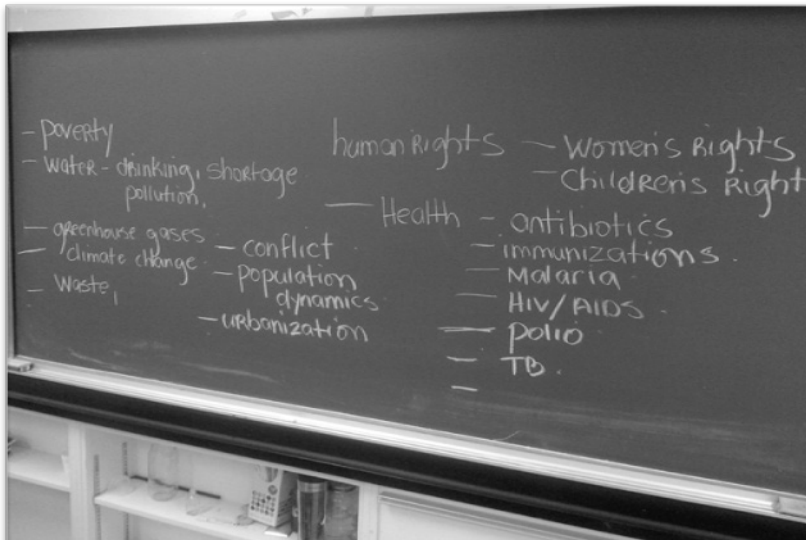 - poverty
- water - drinking, shortage
pollution,
- greenhouse gases
- climate change
- waste,
- conflict
- population
dynamics
- urbanization
human Rights - Women's Rights
- Children's Right
- Health - antibiotics
- immunizations.
- Malaria
- HIV/AIDS.
- polio
- TB.
-